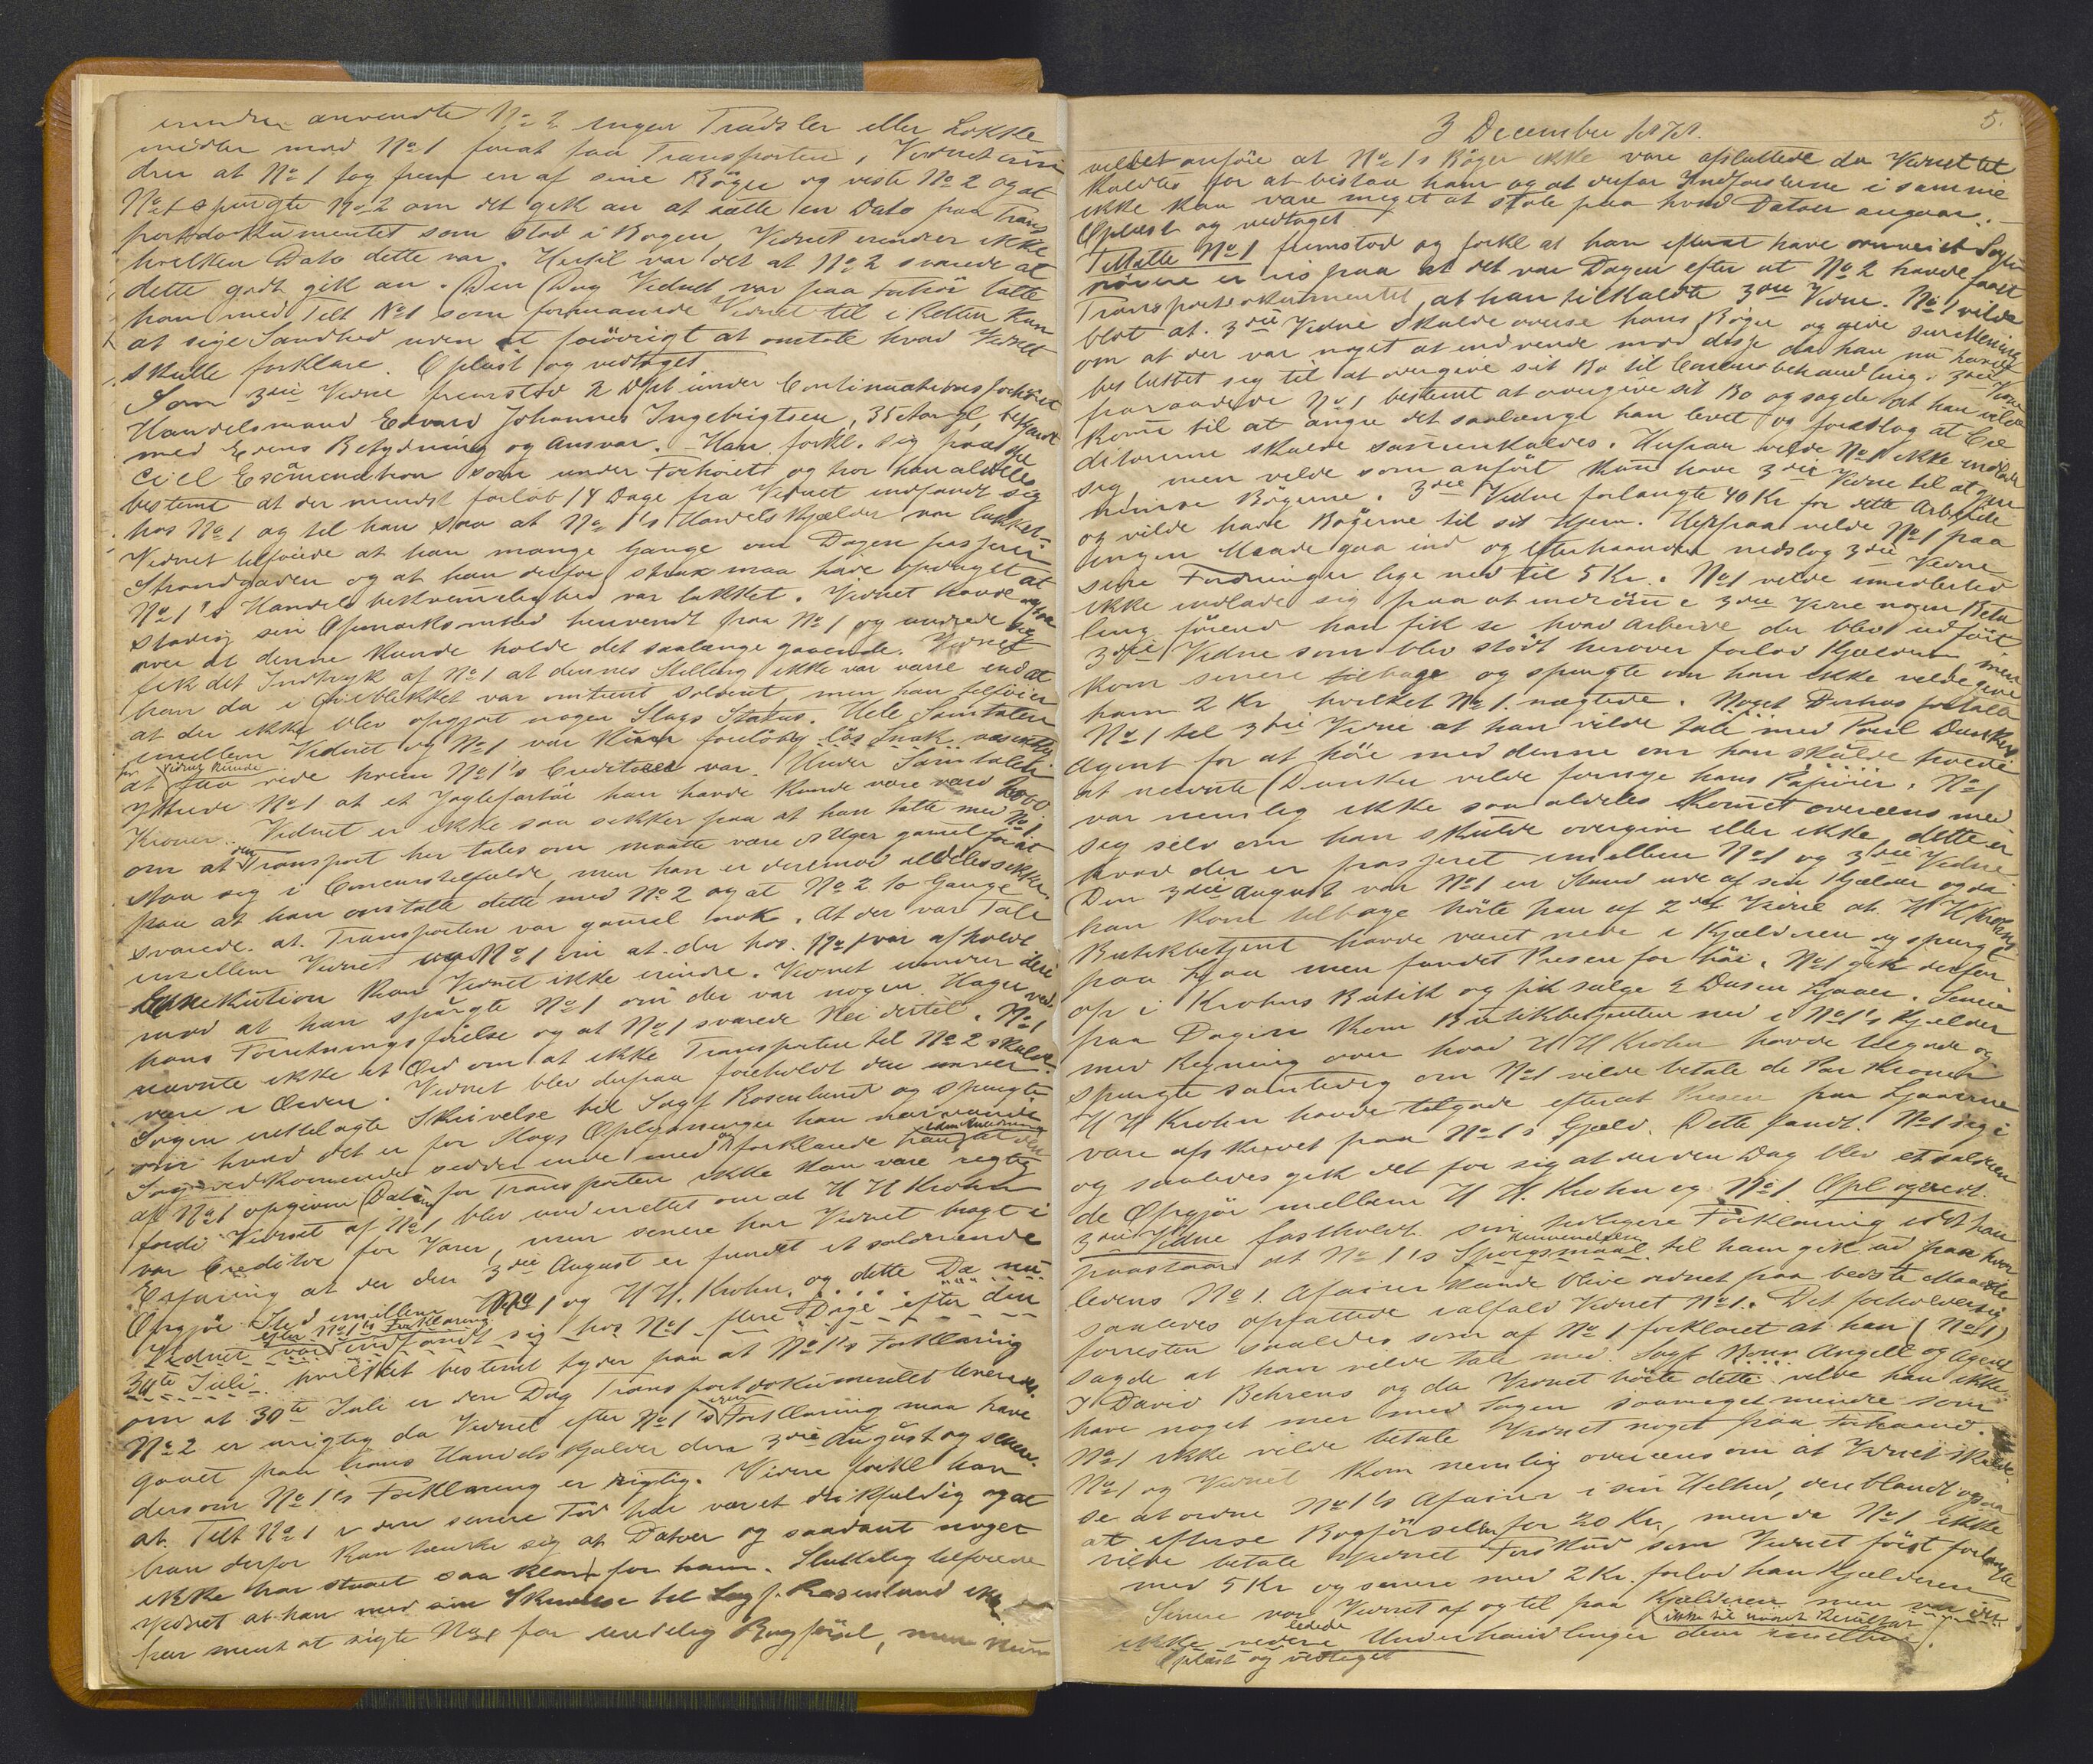 mindre anvendte No 2 ingen Trudsler eller Lokke
midler mod No 1 forat faa Transporten, Vidnet erin
drer at No 1 tog frem en af sine Böger og viste No 2 og at
No 1 spurgte No 2 om det gik an at sætte en Dato paa Trans
portdokumentet som stod i Bogen, Vidnet erindrer ikke
hvilken Dato dette var. Hertil var det at No 2 svarede at
dette godt gik an. Den Dag Vidnet var paa Forhör talte
han med Tilt No 1 som formanede Vidnet til i Retten kun
at sige Sandhed uden at forövrigt at omtale hvad Vidnet
skulle forklare. Oplæst og vedtaget
Som 3die Vidne fremstod 2 Dpt under Continuationsforhöret
Handelsmand Edvard Johannes Ingebrigtsen, 35 Aar gl, bekjendt
med Edens Betydning og Ansvar. Han forkl. sig paa spe
ciel Examination som under Forhöret og tror han aldeles
bestemt at der mindst forlöb 14 Dage fra Vidnet indfandt sig
hos No 1 og til han saa at No 1's Handelskjælder var lukket.
Vidnet tilföiede at han mange Gange om Dagen passerer
Strandgaden og at han derfor strax maa have opdaget at
No 1's Handelsbekvemmelighed var lukket. Vidnet havde ogsaa
stadig sin Opmærksomhed henvendt paa No 1 og undrede sig
over at denne kunde holde det saalænge gaaende. Vidnet
fik det Indtryk af No 1 at dennes Stilling ikke var værre end at
han da i Öieblikket var omtrent solvent, men han tilföier
at der ikke blev opgjort nogen Slags Status. Hele Samtalen
imellem Vidnet og No 1 var kun foreløbig lös Snak
for Vidnet kunde
at faa vide hvem No 1's Creditorer var. Under Samtalen
yttrede No 1 at et Jagtefartöi han havde kunde være værd 4000
Kroner. Vidnet er ikke saa sikker paa at han talte med No 1
om at den Transport her tales om maatte være 8 Uger gamel for at
staa sig i Concurstilfælde, men han er derimod aldeles sikker
paa at han omtalte dette med No 2 og at No 2 to Gange
svarede at Transporten var gamel nok. At der var Tale
imellem Vidnet og No 1 om at der hos No 1 var afholdt
Exekution kan Vidnet ikke erindre. Vidnet erindrer deri
mod at han spurgte No 1 om der var nogen Hager ved
hans Forretningsförelse og at No 1 svarede Nei dertil. No 1
nævnte ikke et Ord om at ikke Transporten til No 2 skulde
være i Orden. Vidnet blev derpaa foreholdt den under
Sagen irettelagte Skrivelse til Sagf Rosenlund og spurgte
om hvad det er for Slags Oplysninger han nærværende
Sag vedkommende sidder inde med og forklarede han at den
af No 1 opgivne Datum for Transporten ikke kan være rigtig
fordi Vidnet af No 1 blev underrettet om at H H Krohn
var Creditor for Varer, men senere har Vidnet bragt i
Erfaring at der den 3die August er fundet et solderende
Opgjör Sted imellem No 1 og H H. Krohn, og dette Da nu
efter No 1's Forklaring
Vidnet var indfandt sig hos No 1 flere Dage efter den
30te Juli hvilket bestemt tyder paa at No 1's Forklaring
om at 30te Juli er den Dag Transportdokumentet leveredes
No 2 er urigtig da Vidnet efter No 1's egen Forklaring maa have
gaaet paa hans Handelskjælder den 3die August og senere.
dersom No 1's Forklaring er rigtig. Vidne forkl han
at Tilt No 1 i den senere Tid har været drikfældig og at
han derfor kan tænke sig at Datoer og saadant noget
ikke har staaet saa klart for ham. Sluttelig tilföiede
Vidnet at han med sin Skrivelse til Sagf. Rosenlund ikke
har ment at sigte No 1 for uredelig Bogførsel, men kun
5.
3 December 1878.
villet anföre at No 1s Böger ikke vare afsluttede da Vidnet til
kaldtes for at bistaa ham og at derfor Indförslerne i samme
ikke kan være meget at stole paa hvad Datoer angaar.
Oplæst og vedtaget
Tiltalte No 1 fremstod og forkl at han efterat have
nöiere er vis paa at det var Dagen efter at No 2 havde faaet
Transportdokumentet, at han tilkaldte 3die Vidne. No 1 vilde
blot at 3die Vidne skulde overse hans Böger og give sin Mening
om at der var noget at indvende mod disse da han nu havde
besluttet sig til at overgive sit Bo til Concursbehandling. 3die Vidne
fraraadede No 1 bestemt at overgive sit Bo og sagde at han vilde
komme til at angre det saalænge han levet og foreslog at Cre
ditorerne skulde sammenkaldes. Herpaa vilde No 1 ikke indlade
sig men vilde som anfört kun have 3die Vidne til at gjen
nemse Bögerne. 3die Vidne forlangte 40 Kr for dette Arbeide
og vilde have Bögerne til sit Hjem. Herpaa vilde No 1 paa
ingen Maade gaa ind og efterhaanden nedslog 3die Vidne
sine Fordringer lige ned til 5 Kr. No 1 vilde imidlertid
ikke indlade sig paa at indrömme 3die Vidne nogen Beta
ling förend han fik se hvad Arbeide der blev udfört
3die Vidne som blev stödt herover forlod Kjælderen men
kom senere tilbage og spurgte om han ikke vilde give
ham 2 Kr hvilket No 1. nægtede. Noget Derhos fortalte
No 1 til 3die Vidne at han vilde tale med Poul Dunker
Agent for at höre med denne om han skulde troede
at nævnte Dunker vilde fornye hans Papirer. No 1
var nemlig ikke saa aldeles kommet overeens med
sig selv om han skulde overgive eller ikke, dette er
hvad der er passeret imellem No 1 og 3die Vidne
Den 3die August var No 1 en Stund ude af sin Kjælder og da
han kom tilbage hörte han af 2det Vidne at H H Krohns
Butikbetjent havde været nede i Kjælderen og spurgt
paa Ljaa men fundet Prisen for höi. No 1 gik derfor
op i Krohns Butik og fik sælge 2 Dusin Ljaaer. Senere
paa Dagen kom Butikbetjenten ned i No 1's Kjælder
med Regning over hvad H H Krohn havde tilgode og
spurgte samtidig om No 1 vilde betale de Par Kroner
H H Krohn havde tilgode efterat Prisen paa Ljaaerne
vare afskrevet paa No 1s Gjæld. Dette fandt No 1 sig i
og saaledes gik det for sig at der den Dag blev et solderen
de Opgjör mellem H H. Krohn og No 1. Opl og vedt.
3die Vidne fastholdt sin tidligere Forklaring idet han
Henvendelse
paastaar at No 1's Spörgsmaal til ham gik ud paa hvor
ledes No 1. Afairer kunde blive ordnet paa bedste Maade
saaledes opfattede ialfald Vidnet No 1. Det forholder sig
forresten saaledes som af No 1 forklaret at han (No 1)
sagde at han vilde tale med Sagf Angell og Agent
I David Behrens og da Vidnet hörte dette vilde han ikke
have noget mer med Sagen saameget mindre som
No 1 ikke vilde betale Vidnet noget paa Forhaand.
No 1 og Vidnet kom nemlig overeens om at Vidnet skulde
se at ordne No 1's Afairer i sin Helhed, deriblandt ogsaa
at efterse Bogförselen for 20 Kr., men da No 1 ikke
vilde betale Vidnet Forskud som Vidnet först forlangte
med 5 Kr og senere med 2 Kr. forlod han Kjælderen
Senere var Vidnet af og til paa Kjælderen men
ledede ikke til noget Resultat
ikke videre Underhandlinger dem imellem.
Oplæst og vedtaget